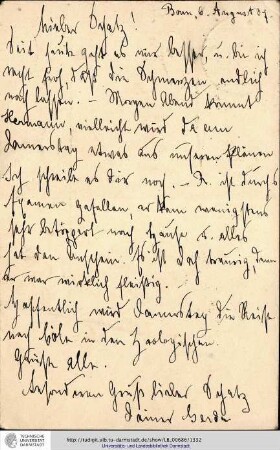 Bonn, 6. August 89.
Lieber Schatz!
Seit heute geht es mir besser, u. bin
recht froh, daß die Schmerzen endlich
nachlassen. – Morgen Abend kommt
Hermann, vielleicht wird dann
Donnerstag etwas aus unseren Plänen
Ich schreibe es dir noch. – R. ist durchs
Examen gefallen, er kam wenigstens
sehr deprimiert nach Hause u. alles
hat den Anschein. Es ist doch traurig, denn
er war wirklich fleißig.
Hoffentlich wird Donnerstag die Reise
nach Köln in den Zoologischen.
Grüße alle.
Besonderen Gruß lieber Schatz
Deine Gerda
TECHNISCHE
UNIVERSITÄT
DARMSTADT
http://tudigit.ulb.tu-darmstadt.de/show/
Universitäts- und Landesbibliothek Darmstadt